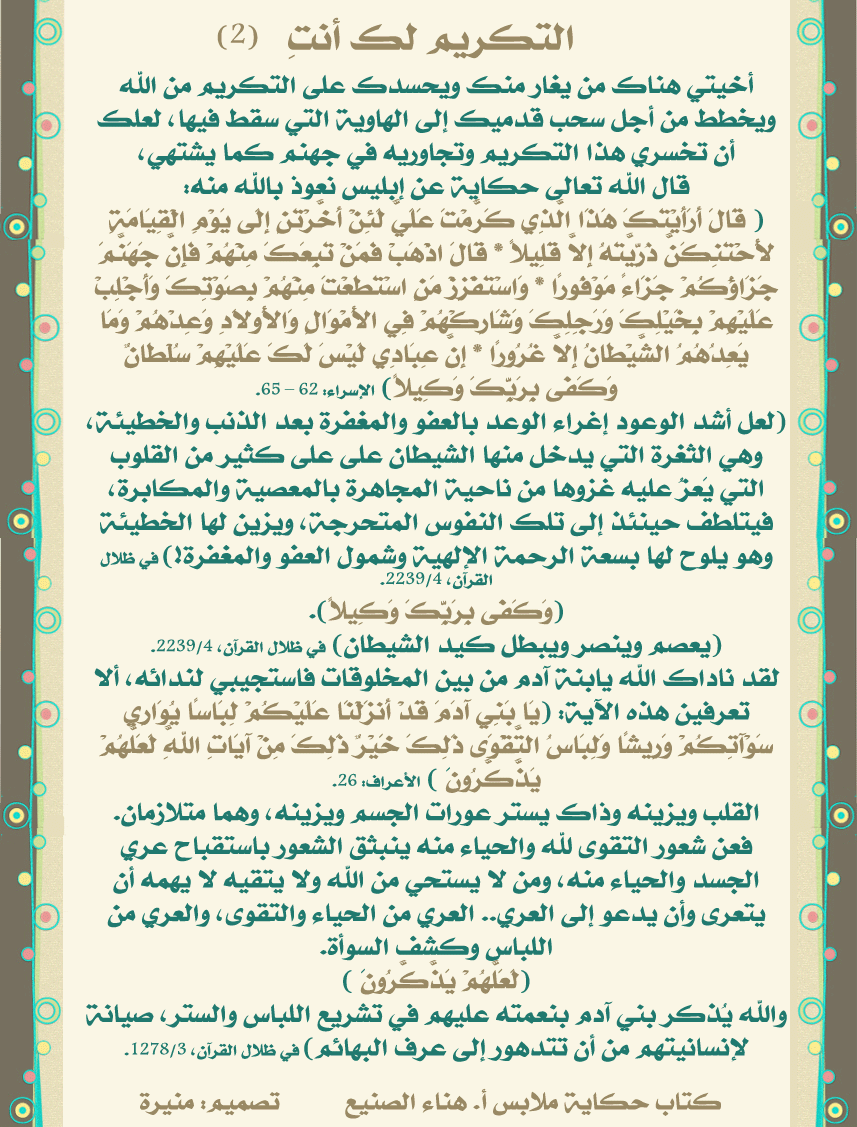 التكريم لك أنتِ (2)
أخيتي هناك من يغار منك ويحسدك على التكريم من الله
ويخطط من أجل سحب قدميك إلى الهاوية التي سقط فيها، لعلك
أن تخسري هذا التكريم وتجاوريه في جهنم كما يشتهي،
قال الله تعالى حكاية عن إبليس نعوذ بالله منه:
( قَالَ أَرَأَيْتَكَ هَذَا الَّذِي كَرَّمْتَ عَلَيَّ لَئِنْ أَخَّرْتَنِ إِلَى يَوْمِ الْقِيَامَةِ
لأَحْتَنِكَنَّ ذُرِّيَّتَهُ إِلاَّ قَلِيلاً * قَالَ اذْهَبْ فَمَنْ تَبِعَكَ مِنْهُمْ فَإِنَّ جَهَنَّمَ
جَزَاؤُكُمْ جَزَاءً مَوْفُورًا * وَاسْتَفْزِزْ مَنِ اسْتَطَعْتَ مِنْهُمْ بِصَوْتِكَ وَأَجْلِبْ
عَلَيْهِمْ بِخَيْلِكَ وَرَجِلِكَ وَشَارِكْهُمْ فِي الأَمْوَالِ وَالأَولادِ وَعِدْهُمْ وَمَا
يَعِدُهُمُ الشَّيْطَانُ إِلاَّ غُرُورًا * إِنَّ عِبَادِي لَيْسَ لَكَ عَلَيْهِمْ سُلْطَانٌ
وَكَفَى بِرَبِّكَ وَكِيلاً) الإسراء: 62 – 65.
(لعل أشد الوعود إغراء الوعد بالعفو والمغفرة بعد الذنب والخطيئة،
وهي الثغرة التي يدخل منها الشيطان على على كثير من القلوب
التي يَعزُ عليه غزوها من ناحية المجاهرة بالمعصية والمكابرة،
فيتلطف حينئذ إلى تلك النفوس المتحرجة، ويزين لها الخطيئة
وهو يلوح لها بسعة الرحمة الإلهية وشمول العفو والمغفرة!) في ظلال
القرآن، 2239/4.
(وَكَفَى بِرَبِّكَ وَكِيلاً).
(يعصم وينصر ويبطل كيد الشيطان) في ظلال القرآن، 2239/4.
لقد ناداك الله يابنة آدم من بين المخلوقات فاستجيبي لندائه، ألا
تعرفين هذه الآية: (يَا بَنِي آدَمَ قَدْ أَنزَلْنَا عَلَيْكُمْ لِبَاسًا يُوَارِي
سَوْآتِكُمْ وَرِيشًا وَلِبَاسُ التَّقْوَى ذَلِكَ خَيْرٌ ذَلِكَ مِنْ آيَاتِ اللَّهِ لَعَلَّهُمْ
يَذَّكَّرُونَ ) الأعراف: 26.
القلب ويزينه وذاك يستر عورات الجسم ويزينه، وهما متلازمان.
فعن شعور التقوى لله والحياء منه ينبثق الشعور باستقباح عري
الجسد والحياء منه، ومن لا يستحي من الله ولا يتقيه لا يهمه أن
يتعرى وأن يدعو إلى العري.. العري من الحياء والتقوى، والعري من
اللباس وكشف السوأة.
(لَعَلَّهُمْ يَذَّكَّرُونَ )
والله يُذكر بني آدم بنعمته عليهم في تشريع اللباس والستر، صيانة
لإنسانيتهم من أن تتدهور إلى عرف البهائم) في ظلال القرآن، 1278/3.
كتاب حكاية ملابس أ. هناء الصنيع تصميم: منيرة